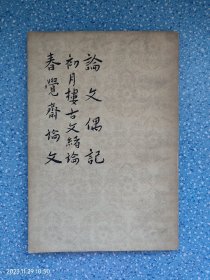 論文偶記
初月樓古文緒論
春覺齋論文
2023.11.29 10:50